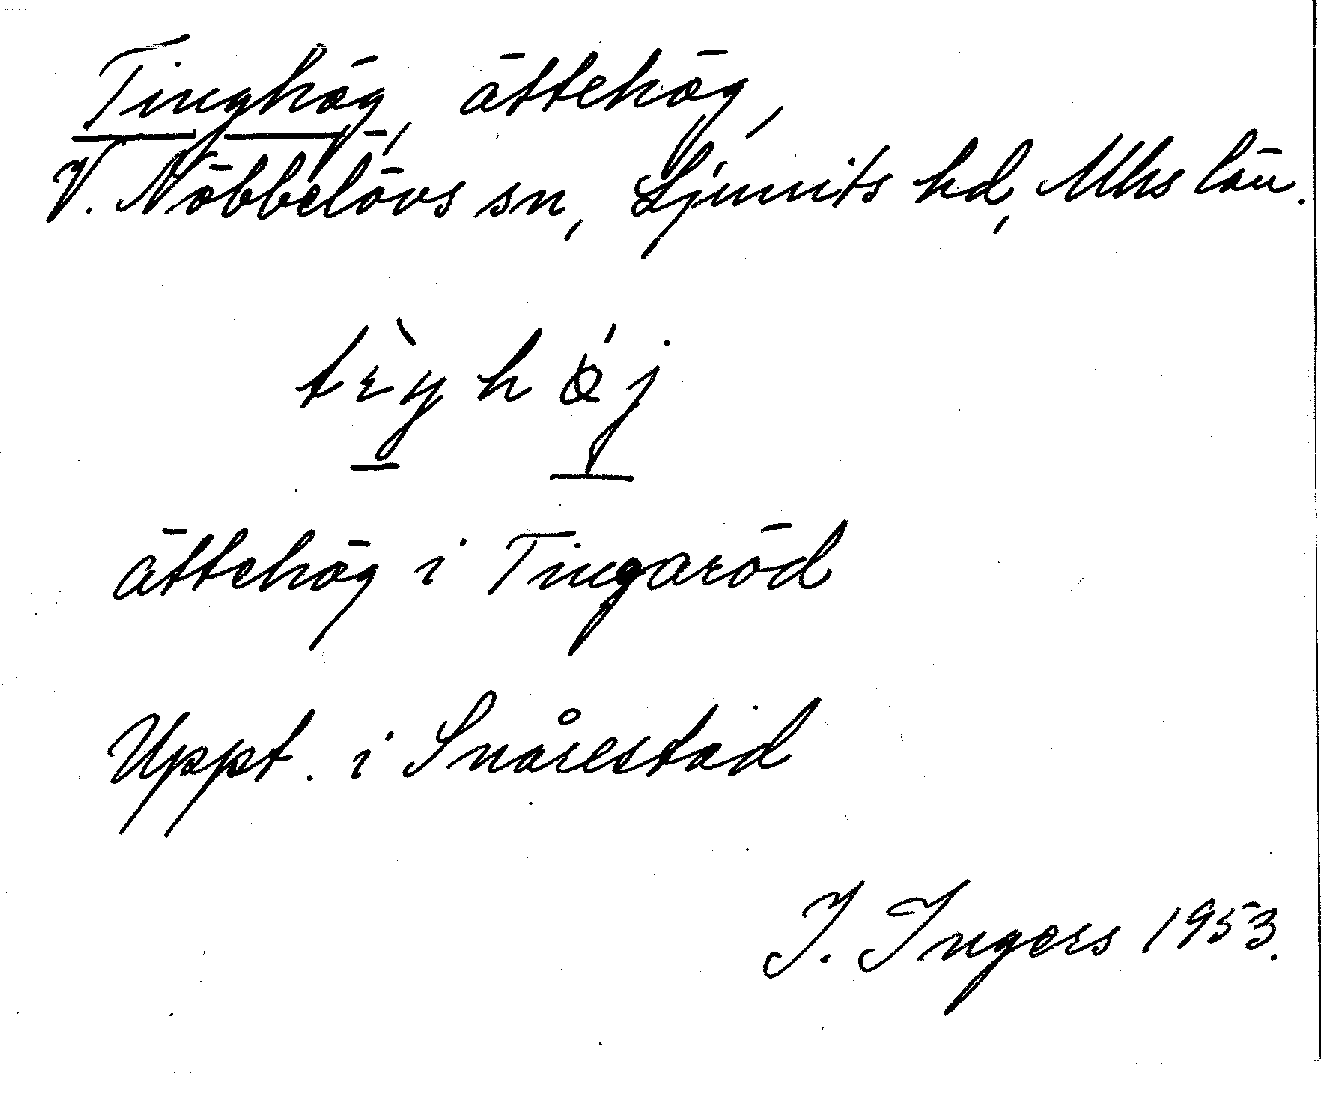 Tinghög, ättehög,
V. Nöbbelövs sn, Ljunits hd, Mhs län.
tὲŋhǿj
ättehög i Tingaröd
Uppt. i Snårestad
I. Ingers 1953.